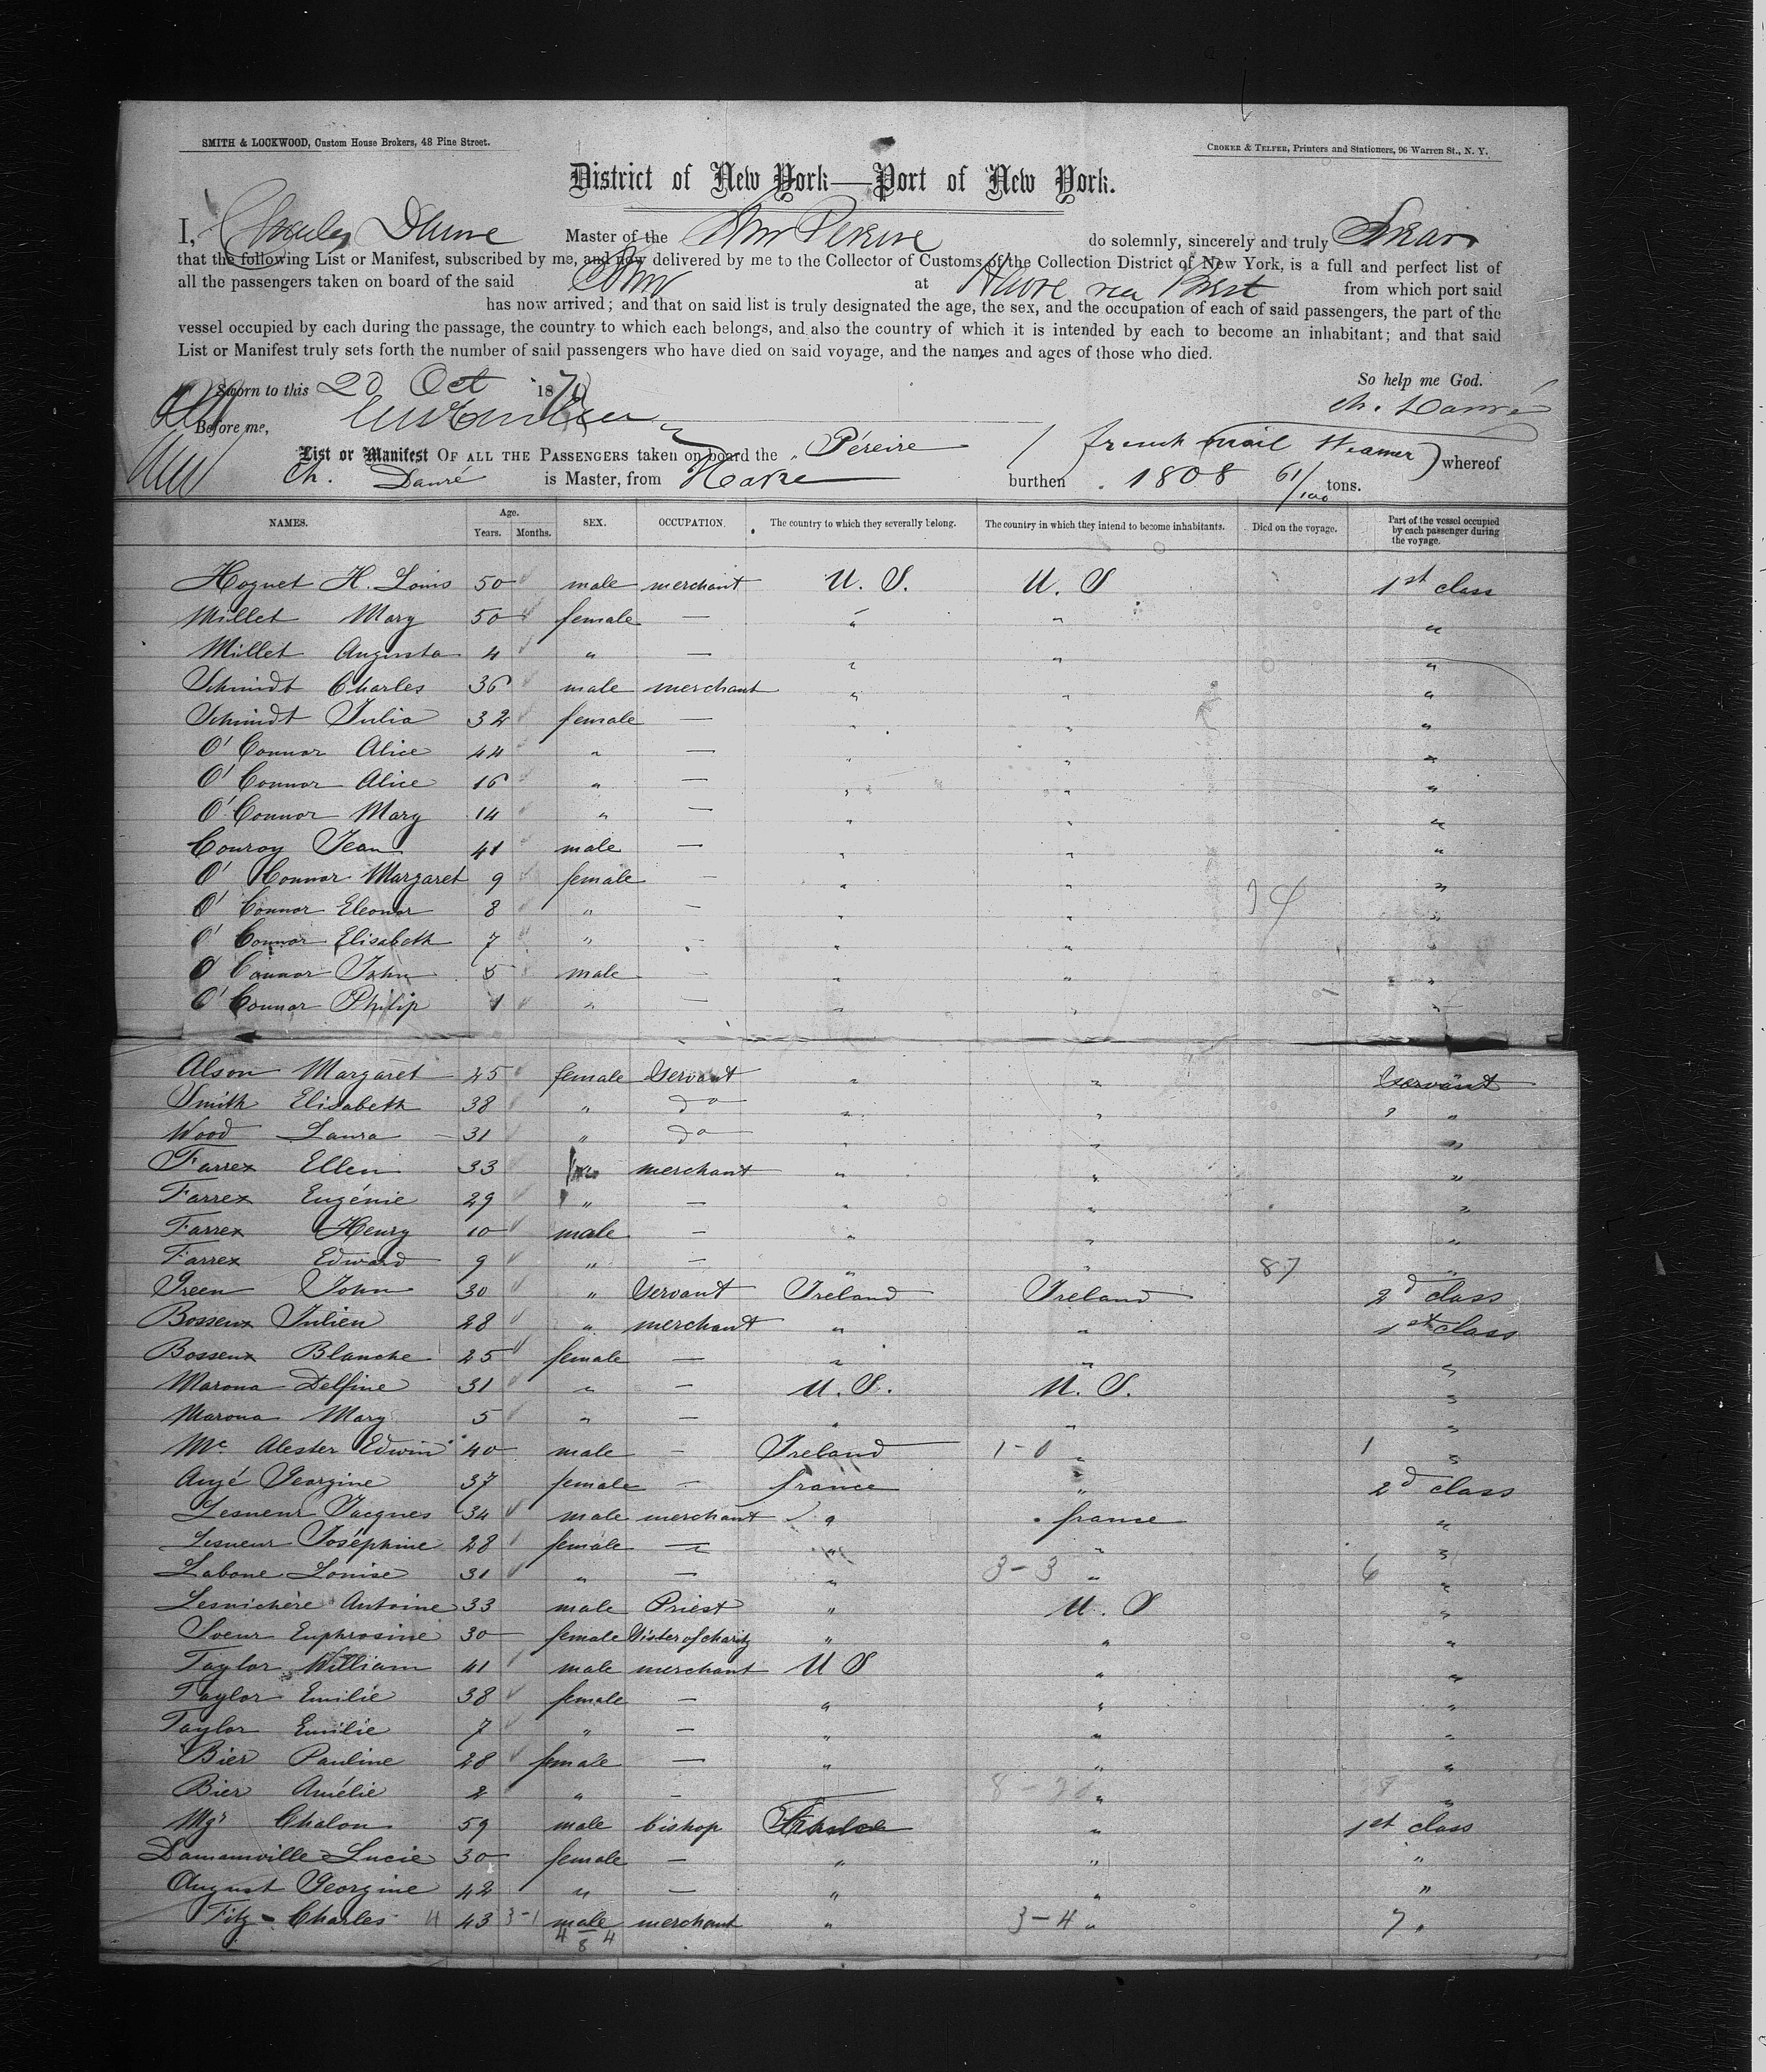 SMITH & LOCKWOOD, Custom House Brokers, 48 Pine Street.
CROKER & TELFER, Printers and Stationers, 96 Warren St., N. Y.
District of New York—Port of New York.
I, Charles Master of the Str Pereire do solemnly, sincerely and truly Swear
that the following List or Manifest, subscribed by me, and now delivered by me to the Collector of Customs of the Collection District of New York, is a full and perfect list of
all the passengers taken on board of the said Str at Havre via Brest from which port said
has now arrived; and that on said list is truly designated the age, the sex, and the occupation of each of said passengers, the part of the
vessel occupied by each during the passage, the country to which each belongs, and also the country of which it is intended by each to become an inhabitant; and that said
List or Manifest truly sets forth the number of said passengers who have died on said voyage, and the names and ages of those who died.
So help me God.
Sworn to this 20 Oct 1870
Ch. Dauré
Before me,
List or Manifest OF ALL THE PASSENGERS taken on board the Péreire / french mail steamer ) whereof
Ch. Dauré is Master, from Havre burthen 1808 61/100 tons.
NAMES. Age. Years. Months. SEX. OCCUPATION. The country to which they severally belong. The country in which they intend to become inhabitants. Died on the voyage. Part of the vessel occupied by each passenger during the voyage.
Hoguet H. Louis 50 male merchant U. S. U. S 1st class
Millet Mary 50 female — " " "
Millet Augusta 4 " — " " "
Schmidt Charles 36 male merchant " " "
Schmidt Julia 32 female — " " "
O' Connor Alice 44 " — " " "
O' Connor Alice 16 " — " " "
O' Connor Mary 14 " — " " "
Conroy Jean 41 male — " " "
O' Connor Margaret 9 female — " " "
O' Connor Eleonor 8 " — " " "
O' Connor Elisabeth 7 " — " " "
O' Connor John 5 male — " " "
O' Connor Philip 1 " — " " "
Alson Margaret 25 female Servant " " Servant
Smith Elisabeth 38 " do " " "
Wood Laura 31 " do " " "
Farrex Ellen 33 merchant " " "
Farrex Eugénie 29 " — " " "
Farrex Henry 10 male — " " "
Farrex Edward 9 " — " " 87 "
Green John 30 " Servant Ireland Ireland 2d class
Bosseux Julien 28 " merchant " " 1st class
Bosseux Blanche 25 female — " " "
Marona Delfine 31 " — U. S. U. S. "
Marona Mary 5 " — " " "
Mc Alester Edwin 40 male — Ireland 1-0 " 1 "
Augé Georgine 37 female — france " 2d class
Lesueur Jacques 34 male merchant " france "
Lesueur Joséphine 28 female — " " "
Labone Louise 31 " — " 3-3 " 6 "
Lesnichère Antoine 33 male Priest " U. S "
Soeur Euphrosine 30 female Sister of charity " " "
Taylor William 41 male merchant U S " "
Taylor Emilie 38 female — " " "
Taylor Emilie 7 " — " " "
Bier Pauline 28 female — " " "
Bier Amélie 2 " — " " "
Mgr Chalon 59 male bishop " 1st class
Damamville Lucie 30 female — " " "
August Georgine 42 " — " " "
Fitz-Charles 4 43 3-1 male merchant " 3-4 " 7 "
4 8 4